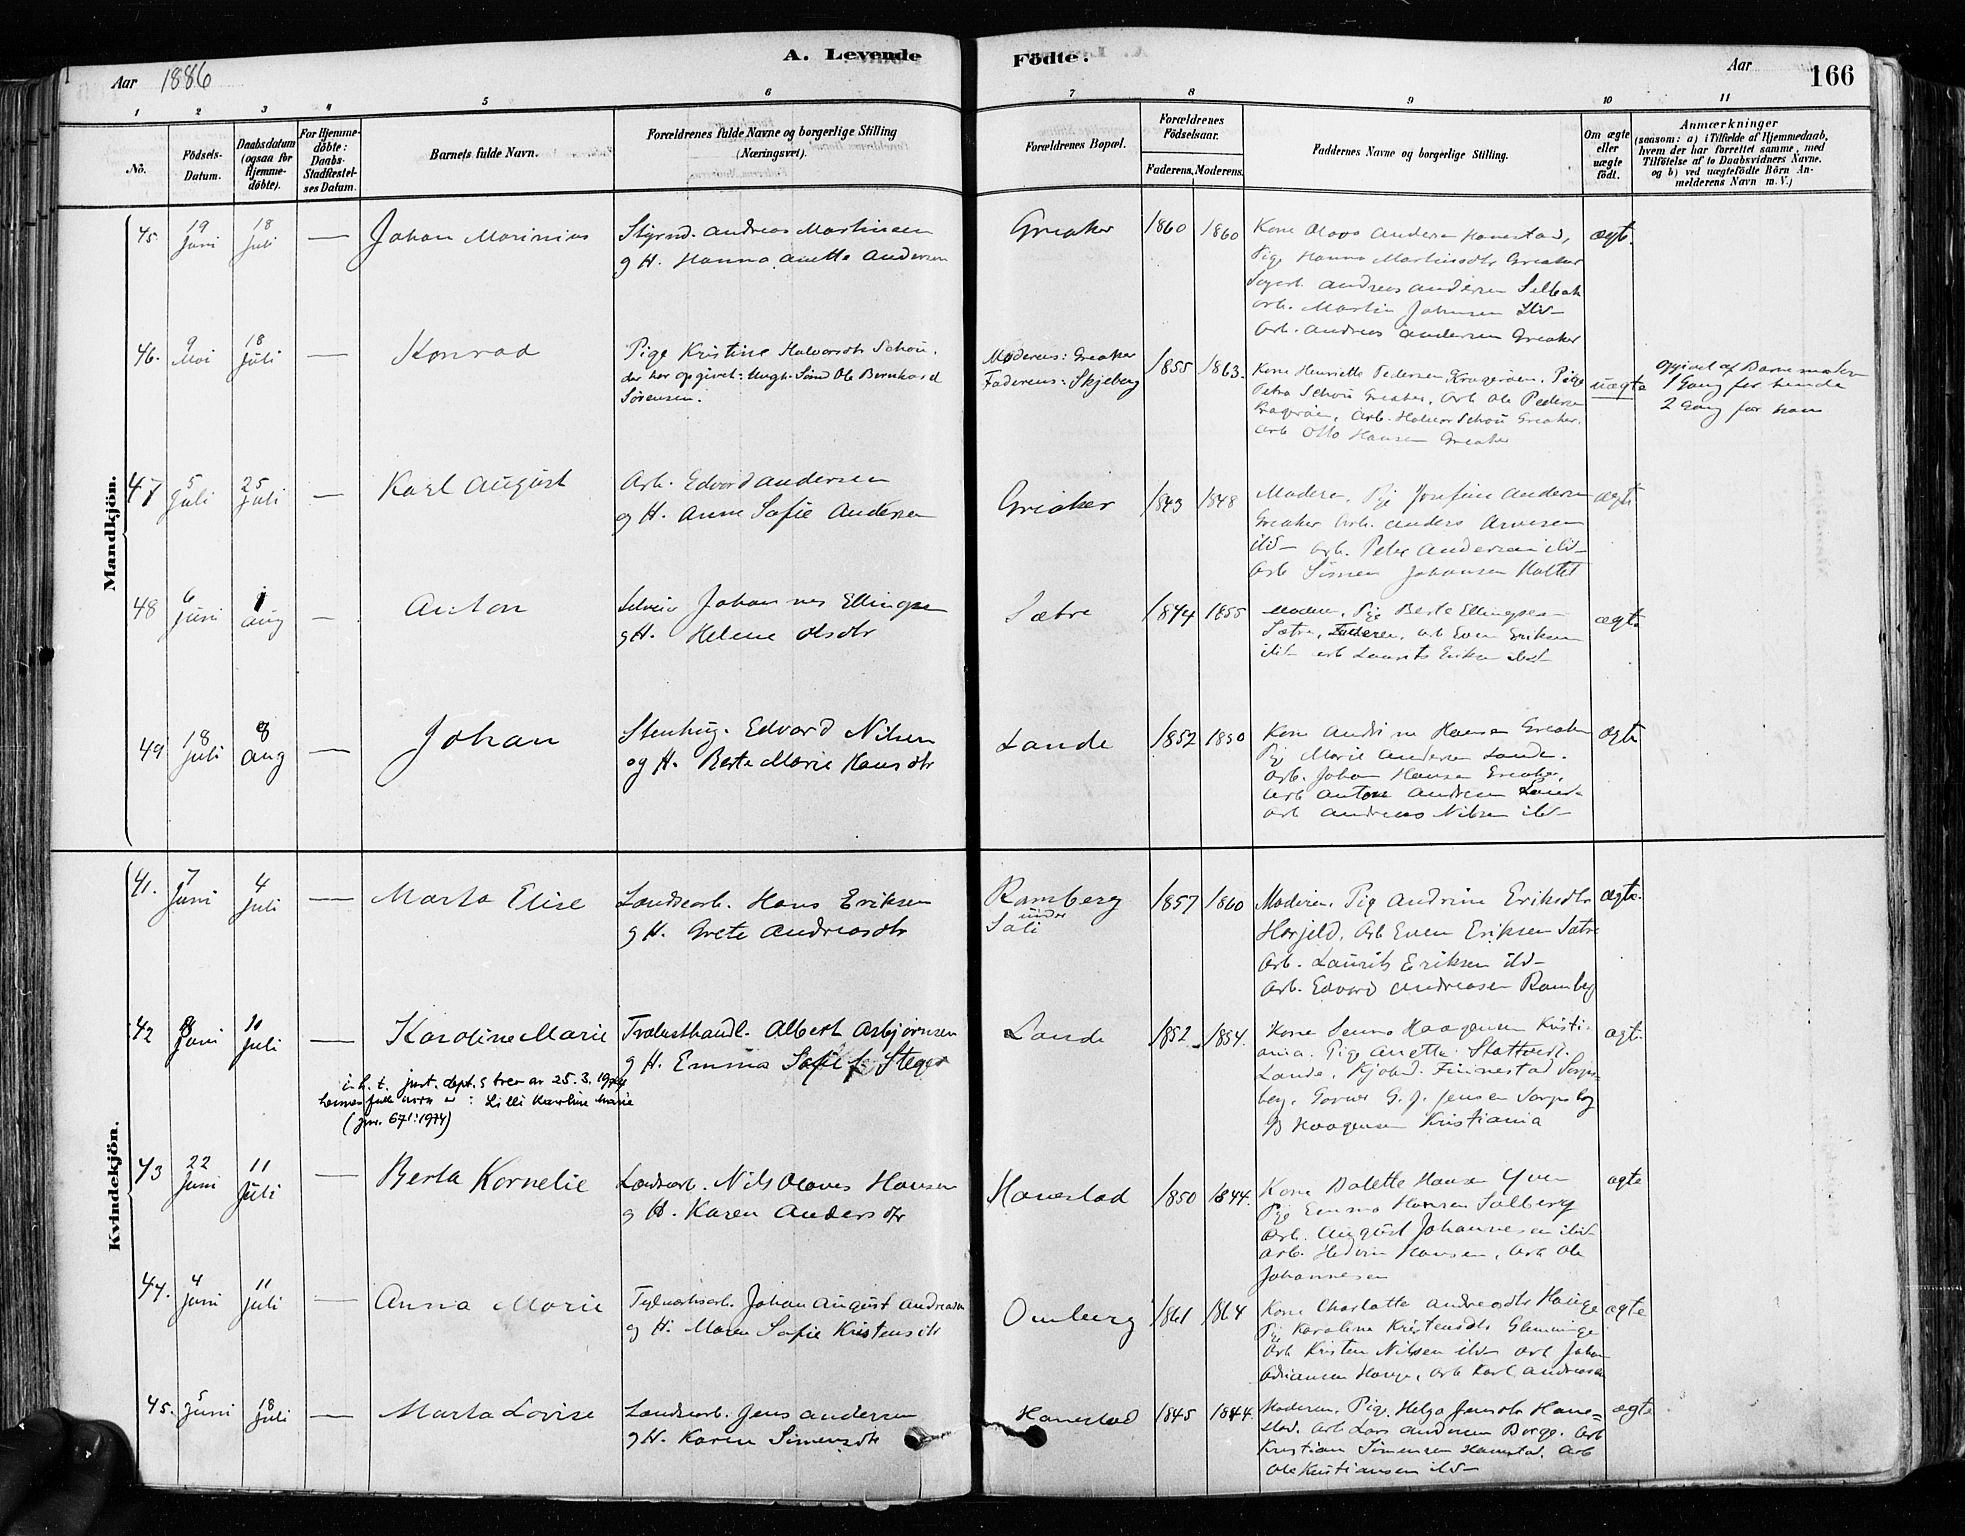 A. Levende Födte.
Aar 1886
Aar
166
1 2 3 4 5 6 7 8 9 10 11
No.
Födsels-Datum.
Daabsdatum (ogsaa for Hjemmedöbte).
For Hjemmedöbte: Daabs-Stadfæstelses Datum.
Barnets fulde Navn.
Forældrenes fulde Navne og borgerlige Stilling (Næringsvei).
Forældrenes Bopæl.
Forældrenes Födselsaar.
Faderens. Moderens.
Faddernes Navne og borgerlige Stilling.
Om ægte eller uægte födt.
Anmærkninger
(saasom: a) i Tilfælde af Hjemmedaab,
hvem der har forrettet samme, med
Tilföielse af to Daabsvidners Navne.
og b) ved uægtefödte Börn An-
melderens Navn m. V.)
Mandkjön.
45. 19 Juni 18 Juli — Johan Marinius
Styrmd. Andreas Martinsen
g H. Hanna Anette Andersen
Greaker 1860 1860
Kone Olava Andersen Hanestad,
Pige Hanna Martinsdtr Greaker
Andreas Andersen Selbak
Arb. Martin Johansen ibid-
Arb. Andreas Andersen Greaker
ægt.
46. 9 Mai 18 Juli — Konrad
Pige Kristine Halvorsdtr Schou,
der har opgivet: Ungk. Sömd Ole Bernhard
Sörensen.
Moderens: Greaker
Faderens: Skjeberg
1855 1863.
Kone Henriette Pedersen Kragerøen, Pige
Petra Schou Greaker, Arb Ole Pedersen
Kragerøen, Arb. Halvor Schou Greaker.
Arb Otto Hansen Greaker
uægte
opgivet af Barnemoderen
1 Gang for hende
2 Gang for ham
47 5 Juli 25 Juli — Karl August
Arb. Edvard Andersen
og H. Anne Sofie Andersen
Greaker 1843 1848
Moderen, Pige Josefine Andersen
Greaker Arb. Anders Arnesen
ibid- Arb. Peter Andersen ibid-
Arb Simen Johansen
ægte
48 6 Juni 1 Aug — Anton
Selveier Johannes Ellingsen
g H. Helene Olsdtr
Sætre 1844 1855
Moderen, Pige Berte Ellingsen
Sætre, Faderen, Arb Even Eriksen
ibid- arb Laurits Eriksen ibid-
ægte
49 18 Juli 8 Aug — Johan
Stenhug. Edvard Nilsen
og H. Berte Marie Hansdtr
Lande 1852 1850
Kone Andrine Hansen Greaker
Pige Marie Andersen Lande.
Arb. Johan Hansen Greaker,
Arb Anton Andersen Lande
Arb Andreas Nilsen ibid-
ægte
Kvindekjön.
41. 7 Juni 4 Juli — Marta Elise
Landsarb. Hans Eriksen
g H. Grete Andreasdtr
Ramberg under Sali
1857 1860
Moderen, Pige Andrine Eriksdtr
Arb Even Eriksen Sætre
Arb. Laurits Eriksen ibid-
Arb. Edvard Andreasen Ramberg
ægte.
42 Juni 11 Juli — Karoline Marie
Trælasthandl. Albert Asbjørnsen
g H. Emma Sofie f. Steger
i h. t. just. dept.s brev av 25.3.1974
hennes fulle navn er: Lilli Karoline Marie
(jnr. 671:1974)
Lande 1852 1854.
Kone Haagensen Kristi-
ania. Pige Anette
Lande, Kjøbmd. Finnestad Sarps-
borg, G. J. Jensen Sarpsborg
Haagensen Kristiania
ægte
43 22 Juni 11 Juli — Berta Kornelie
Landsarb. Nils Olaves Hansen
g H. Karen Andersdtr
Hanestad 1850 1844.
Kone Dalette Hansen Yven
Pige Emma Hansen Solberg
Arb. August Johannesen ibid-
Arb. Hansen, Arb Ole
Johannesen
ægte
44. 4 Juni 11 Juli — Anna Marie
Teglværksarb. Johan August Andreasen
og H. Maren Sofie Kristensdtr
Omberg 1861 1864
Kone Charlotte Andreasdtr Hauge
Pige Karoline Kristensdtr Glemminge
Arb Kristen Nilsen ibid- Arb Johan
Adriansen Hauge, Arb Karl Andreasen
ægte
45. 5 Juni 18 Juli — Marta Lovise
Landsarb. Jens Andersen
g H. Karen Simensdtr
Hanestad 1845 1844.
Moderen, Pige Helga Jensdtr Hane-
stad. Arb Lars Andersen Borge. Arb
Kristian Simensen Hanestad. Arb
Ole Kristiansen ibid-
ægte